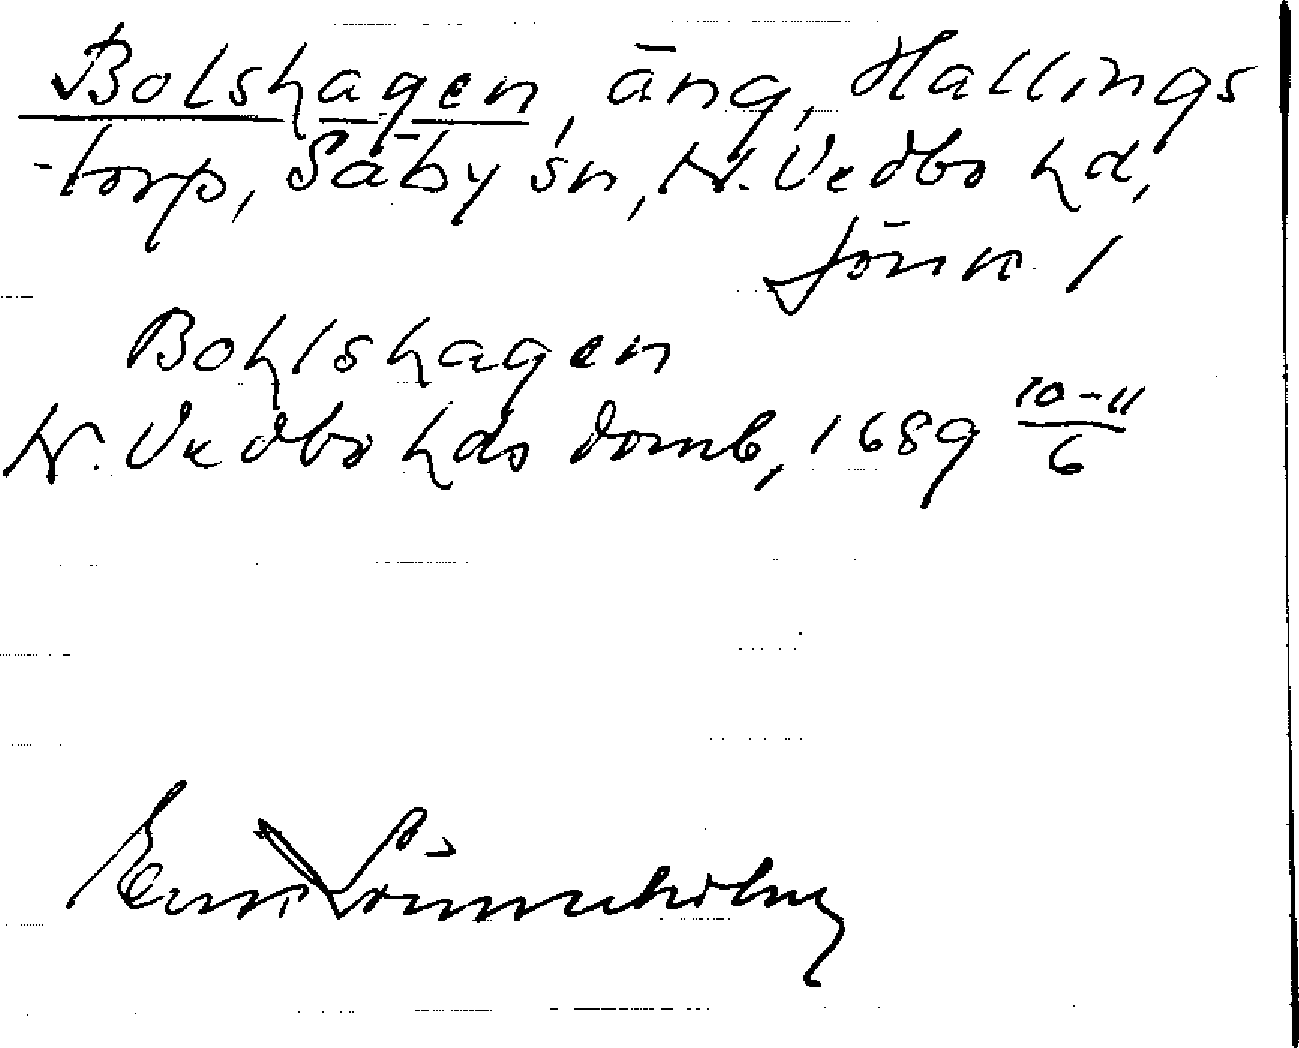 Bolshagen, äng, Hallings
-torp, Säby sn, N. Vedbo hd,
Jönk l
Bohlshagen
N. Vedbo hds domb, 1689 10-11/6